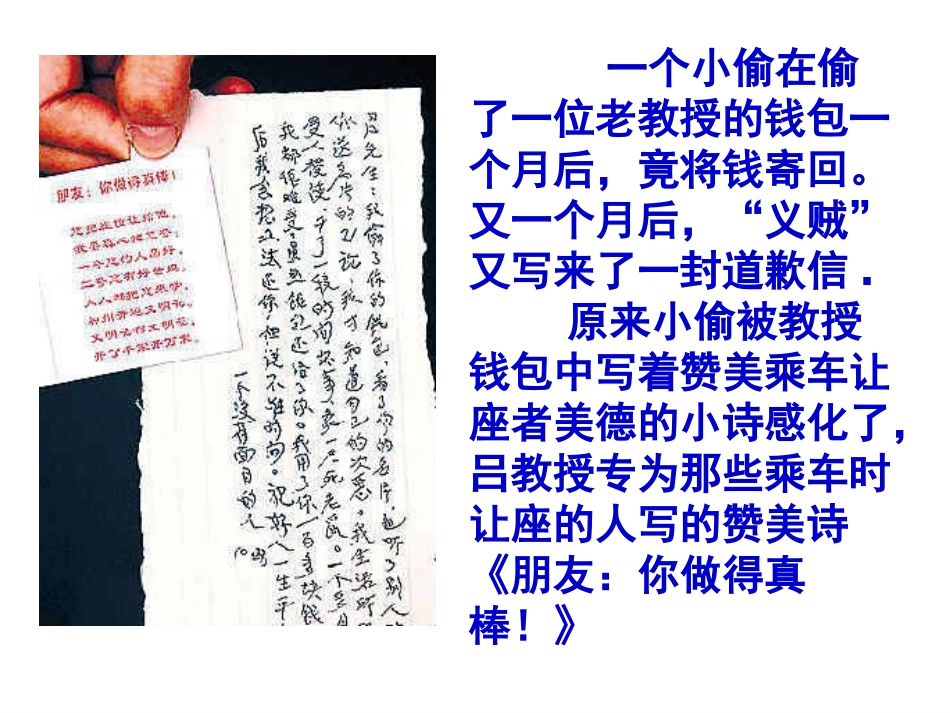 一个小偷在偷
了一位老教授的钱包一
个月后，竟将钱寄回。
又一个月后，“义贼”
又写来了一封道歉信．
原来小偷被教授
钱包中写着赞美乘车让
座者美德的小诗感化了，
吕教授专为那些乘车时
让座的人写的赞美诗
《朋友：你做得真
棒！》
朋友：你做得真棒！
您把座位让给他，
人人都把您来学，
郑州开遍文明花。
开了千家开万家。
吕先生：我偷了你的钱包，看了你的名片，也听了别人
你送名片的议论，我才知道自己的次恶。我生活所
受人 干了一段时间坏事，象一只死老鼠。一个多月
都很难受 还给了你。我用了你一百多块钱
后我会想办法还你，但说不准时间。祝好人一生平
一个没有面目的人